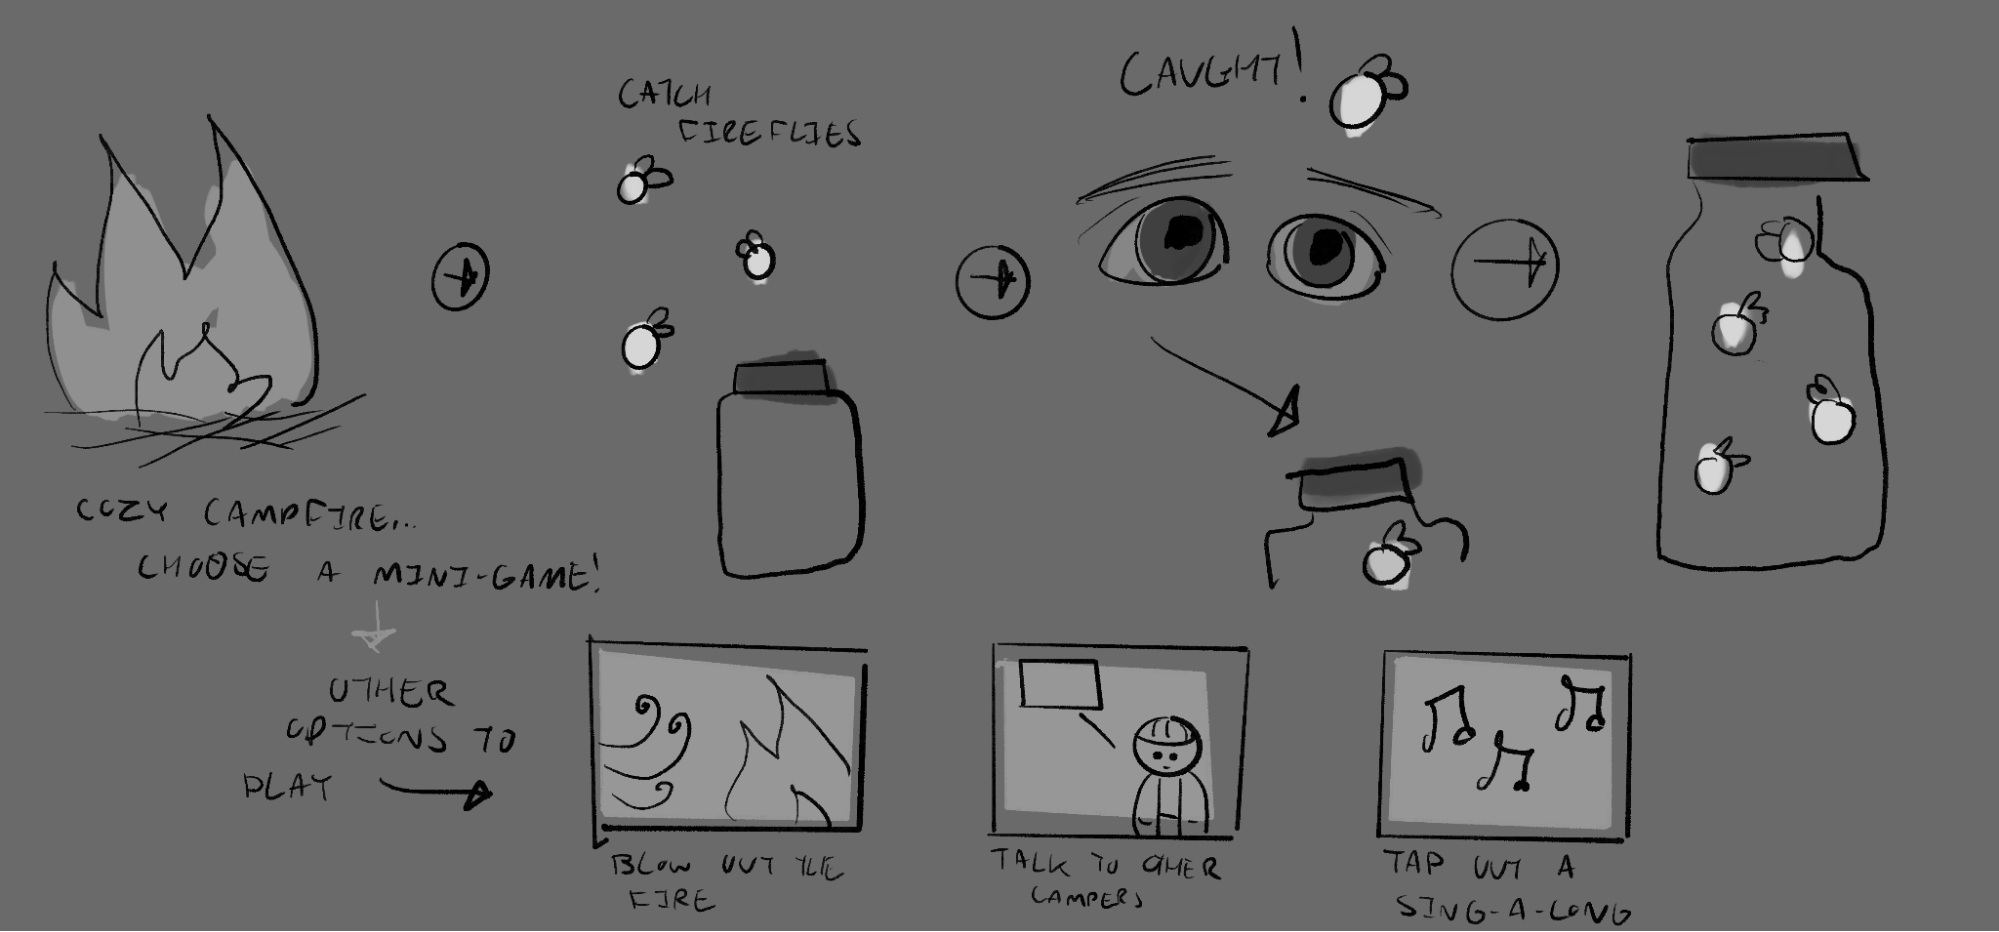 COZY CAMPFIRE...
CHOOSE A MINI-GAME!
CATCH
FIREFLIES
CAUGHT!
OTHER
OPTIONS TO
PLAY
BLOW OUT THE
FIRE
TALK TO OTHER
CAMPERS
TAP OUT A
SING-A-LONG